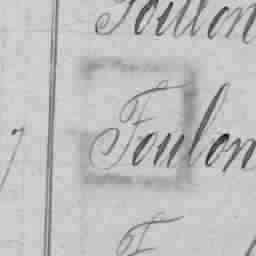 Foulon
7 Foulon
F